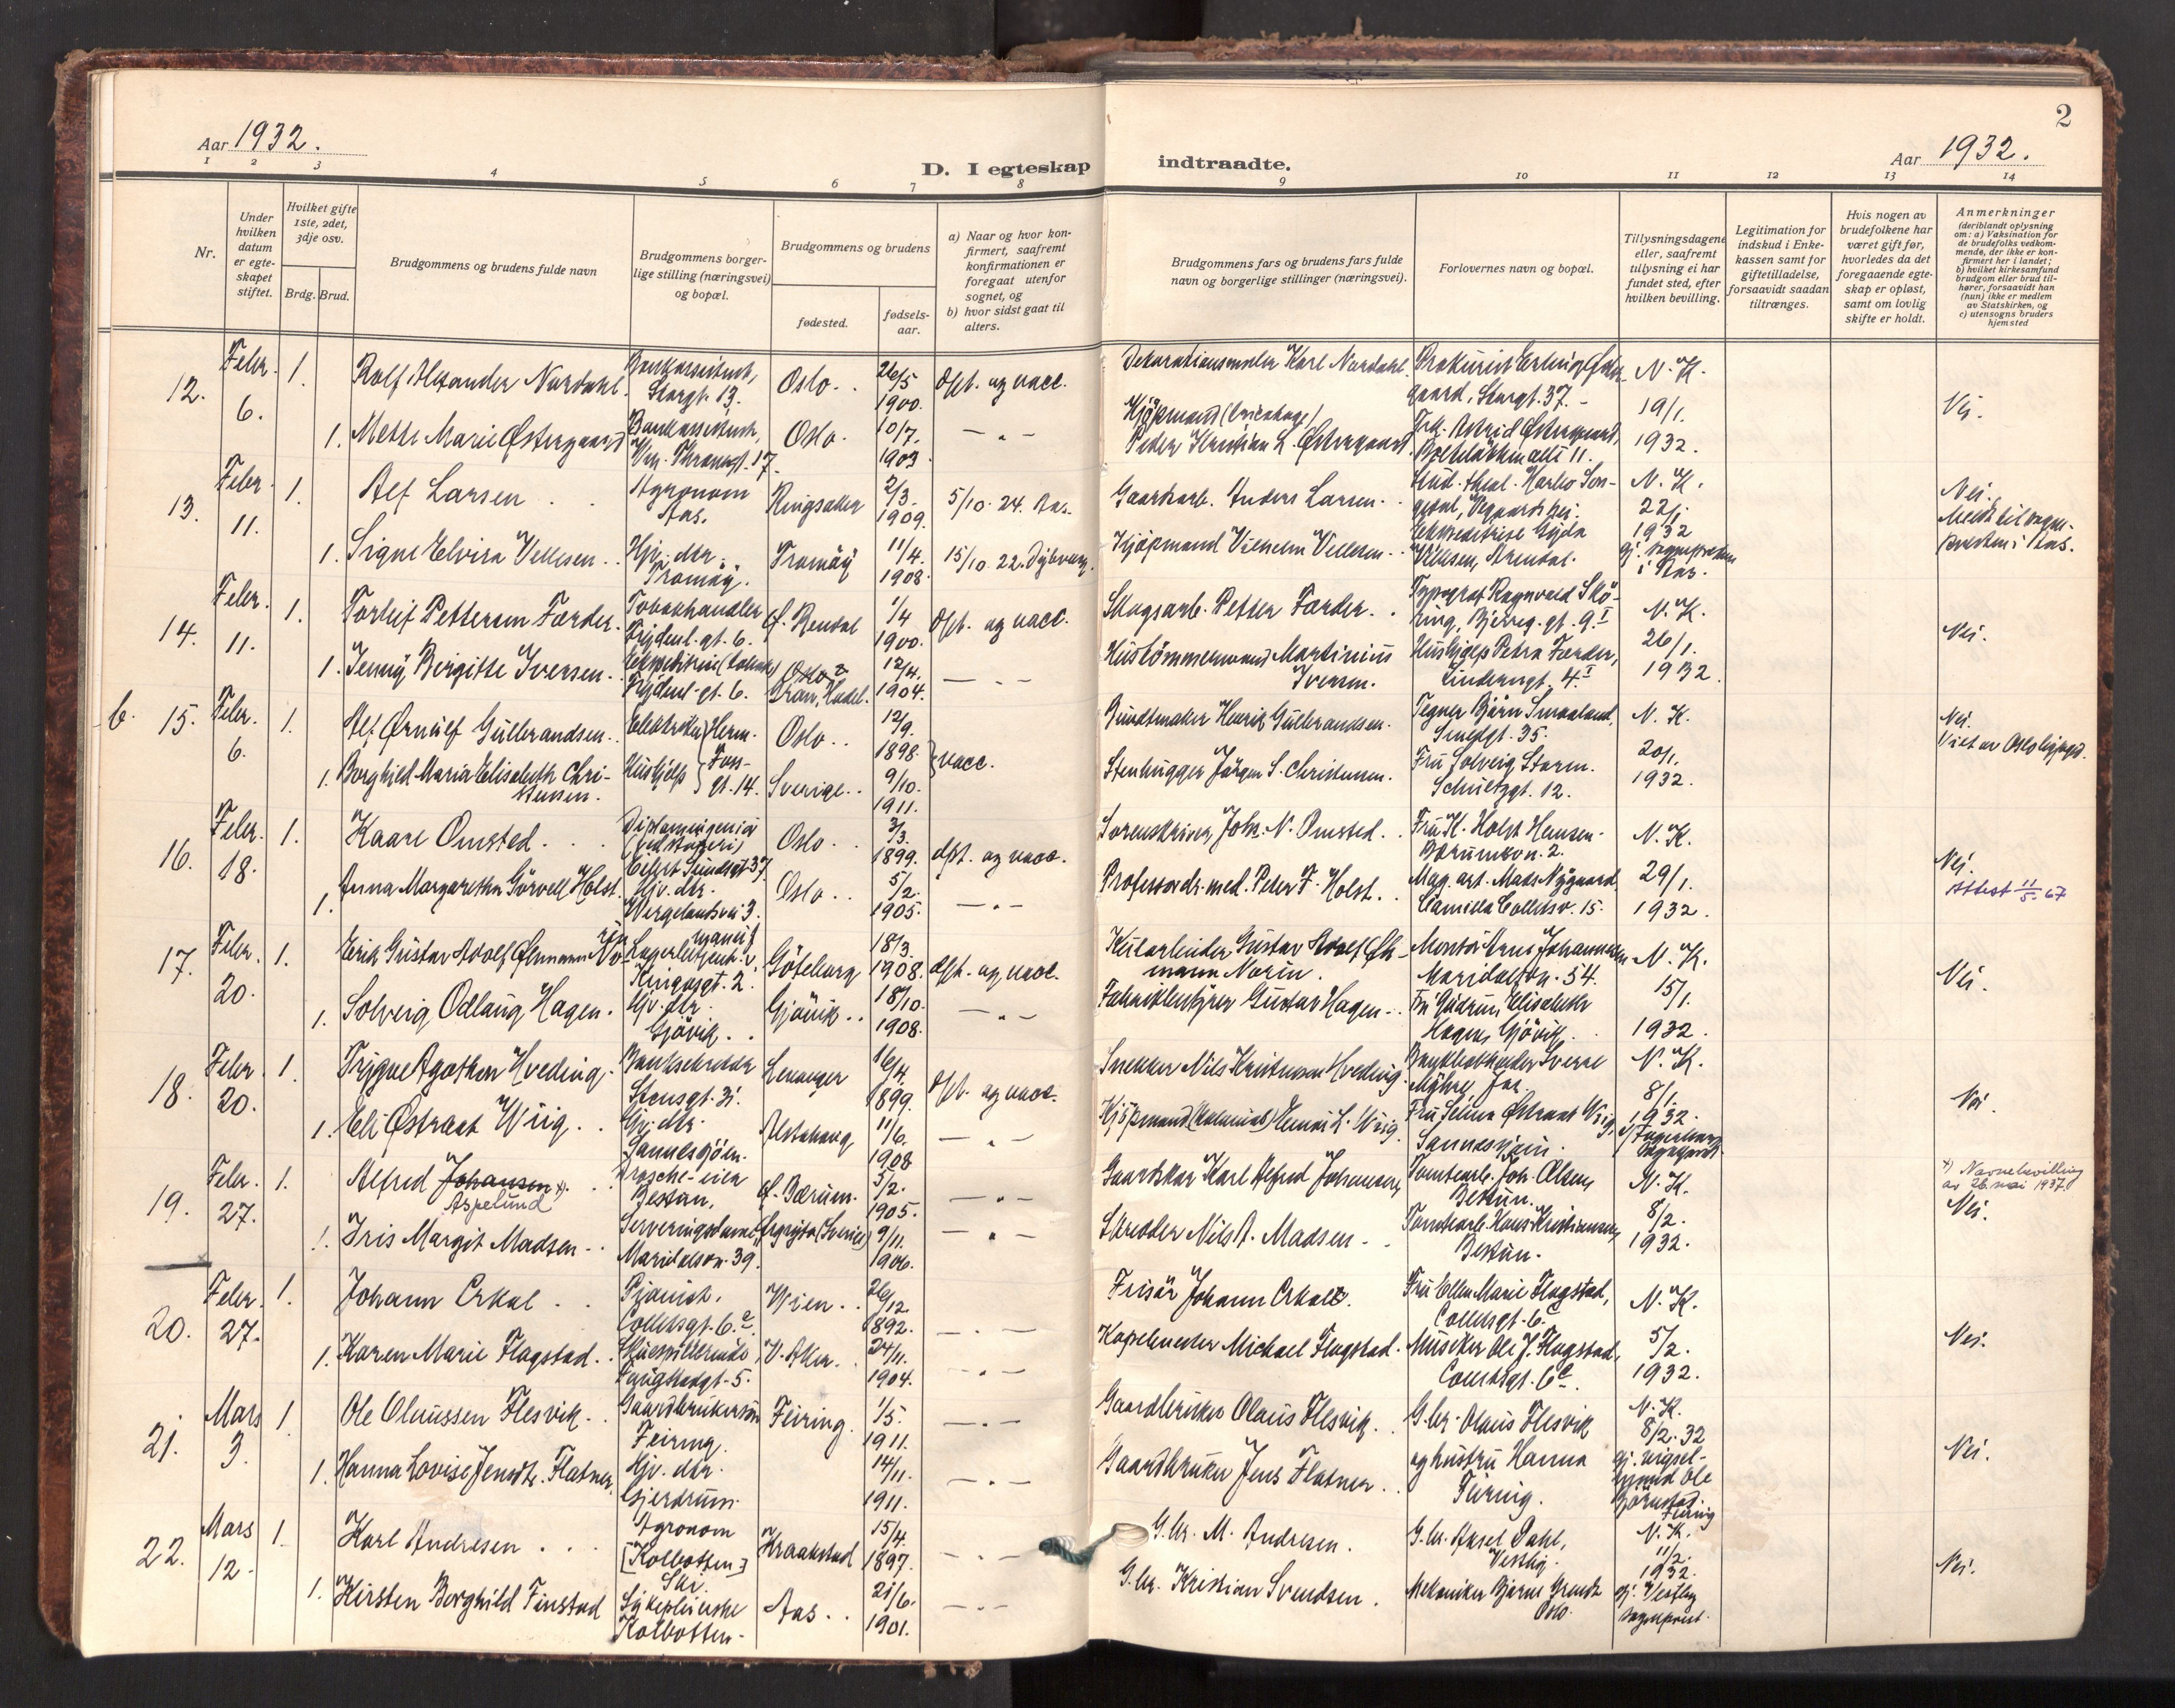 Aar 1932.
D. I egteskap indtraadte.
Aar 1932.
2
1 2 3 4 5 6 7 8 9 10 11 12 13 14
Nr.
Under hvilken datum er egteskapet stiftet.
Hvilket gifte 1ste, 2det, 3dje osv.
Brdg. Brud.
Brudgommens og brudens fulde navn
Brudgommens borgerlige stilling (næringsvei) og bopæl.
Brudgommens og brudens
fødested.
fødselsaar.
a) Naar og hvor konfirmert, saafremt konfirmationen er foregaat utenfor sognet, og
b) hvor sidst gaat til alters.
Brudgommens fars og brudens fars fulde navn og borgerlige stillinger (næringsvei).
Forlovernes navn og bopæl.
Tillysningsdagene eller, saafremt tillysning ei har fundet sted, efter hvilken bevilling.
Legitimation for indskud i Enkekassen samt for giftetilladelse, forsaavidt saadan tiltrænges.
Hvis nogen av brudefolkene har været gift før, hvorledes da det foregaaende egteskap er opløst, samt om lovlig skifte er holdt.
Anmerkninger (deriblandt oplysning om: a) Vaksination for de brudefolks vedkommende, der ikke er konfirmert her i landet; b) hvilket kirkesamfund brudgom eller brud tilhører, forsaavidt han (hun) ikke er medlem av Statskirken, og c) utensogns bruders hjemsted
12. Febr. 6. 1. Rolf Alexander Nordahl. Storgt. 13. Oslo. 26/5 1900. dpt. og vacc. Dekorationsmaler Karl Nordahl. Storgt. 37. N. K. 19/1. 1932. Nei.
1. Mette Marie Østergaard Oslo. 10/7. 1903. Kjöpmand Peder Kristian L. Østergaard. Frk. Astrid Østergaard,
13. Febr. 11. 1. Alf Larsen Agronom Aas. Ringsaker 2/3. 1909. 5/10. 24. Aas. Gaardsarb. Anders Larsen. N. K. 22/1 1932 Nei. Meldt til sognepresten i Aas.
1. Signe Elvira Vellesen. Hjv. dtr. Tromöy. Tromöy 11/4. 1908. 15/10. 22. Dybvaag. Kjöpmand Vilhelm Vellesen. Vellesen, Arendal. i Aas.
14. Febr. 11. 1. Torleif Pettersen Færder. Tobakhandler Frydenl. gt. 6. Ø. Rendal 1/4 1900. dpt. og vacc. Skogsarb. Petter Færder. Typograf Ragnvald N. K. 26/1. 1932. Nei.
1. Jenny Birgitte Iversen. Frydenl. gt. 6. Gran, Hadel. 12/4. 1904. Hustömmermand Martinius Iversen. Hushjælp Petra Færder,
6. 15. Febr. 6. 1. Alf Ørnulf Gulbrandsen. Elektriker Oslo. 12/9. 1898. vacc. Bundtmaker Henrik Gulbrandsen. Tegner Björn Smaaland, Smedgt. 35. N. K. 20/1. 1932. Nei. Viet av Oslo byfogd.
1. Borghild Maria Elisabeth Christensen. Hushjelp gt. 14. Sverige. 9/10. 1911. Stenhugger Jörgen S. Christensen. Fru Solveig Storm. Schultzgt. 12.
16. Febr. 18. 1. Kaare Omsted. Diplomingeniör Eilert Sundsgt 37 Oslo. 3/3. 1899. dpt. og vacc. Sorenskriver Johs. N. Omsted. Fru K. Holst Hansen. Bærumsvn. 2. N. K. 29/1. 1932. Nei. Attest 11/5-67
1. Anna Margaretha Görvell Holst. Hjv. dtr. Wergelandsvei 3. Oslo. 5/2. 1905. Professor dr. med. Peter F. Holst. Mag. art. Mads Nygaard, Camilla Collettsv. 15.
17. Febr. 20. 1. Erik Gustav Adolf Öhrmann Norin Kingosgt. 2. Göteborg 18/3 1908. dpt. og vacc. Gustav Adolf Öhrmann Norin. Montör Arne Johannesen Maridalsvn. 54. N. K. 15/1. 1932. Nei.
1. Solveig Odlaug Hagen. Hjv. dtr. Gjövik. Gjövik. 18/10. 1908. Fabrikbestyrer Gustav Hagen. Fru Gudrun Elisabeth Hagen, Gjövik.
18. Febr. 20. 1. Trygve Agathon Hveding. Stensgt. 31. 16/4. 1899. dpt. og vacc. Snekker Nils Kristensen Hveding. Sverre Myhre, N. K. 8/1. 1932. Nei.
1. Eli Østraat Wiig. Hjv. dtr. Sannesjöen. Alstahaug 11/6. 1908 Kjöpmand Einar L. Wiig. Fru Selma Østraat Wiig, Sannesjöen.
19. Febr. 27. 1. Alfred Johansen x). Aspelund Drosche-eier Bestun. Ø. Bærum. 5/2. 1905. Gaardskar Karl Alfred Johansen, Tomtearb. Joh. Olsen, Bestun. N. K. 8/2. 1932. x) Navnebevilling av 26. mai 1937. Nei.
1. Iris Margit Madsen. Serveringsdame, Maridalsvn. 39. Örgryte (Sverige) 9/11. 1906. Skredder Nils A. Madsen. Tomtearb. Hans Kristiansen, Bestun.
20. Febr. 27. 1. Johann Erkal. Pianist. Collettsgt. 6.c Wien. 26/12. 1892. Frisör Johann Erkal. Fru Ellen Marie Flagstad, Collettsgt. 6. N. K. 5/2. 1932. Nei.
1. Karen Marie Flagstad. Skuespillerinde, V. Aker. 24/11. 1904. Kapelmester Michael Flagstad. Musiker Ole J. Flagstad, Collettsgt. 6c.
21. Mars 3. 1. Ole Olaussen Flesvik. Gaardbrukersön Feiring. Feiring. 1/5. 1911. Gaardbruker Olaus Flesvik. G.br. Olaus Flesvik og hustru Hanna Feiring. N. K. 8/2. 32 Nei.
1. Hanna Lovise Jensdtr. Flatner. Hjv. dtr. Gjerdrum. 14/11. 1911. Gaardbruker Jens Flatner.
22. Mars 12. 1. Karl Andresen. Agronom [Kolbotten] Ski. Kraakstad 15/4. 1897. G.br. M. Andresen. G.br. Aksel Dahl, Vestby. N. K. 11/2. 1932. Nei.
1. Kirsten Borghild Finstad Sykepleierske Kolbotten. Aas. 21/6. 1901. G.br. Kristian Svendsen. Mekaniker Bjarne Oslo.